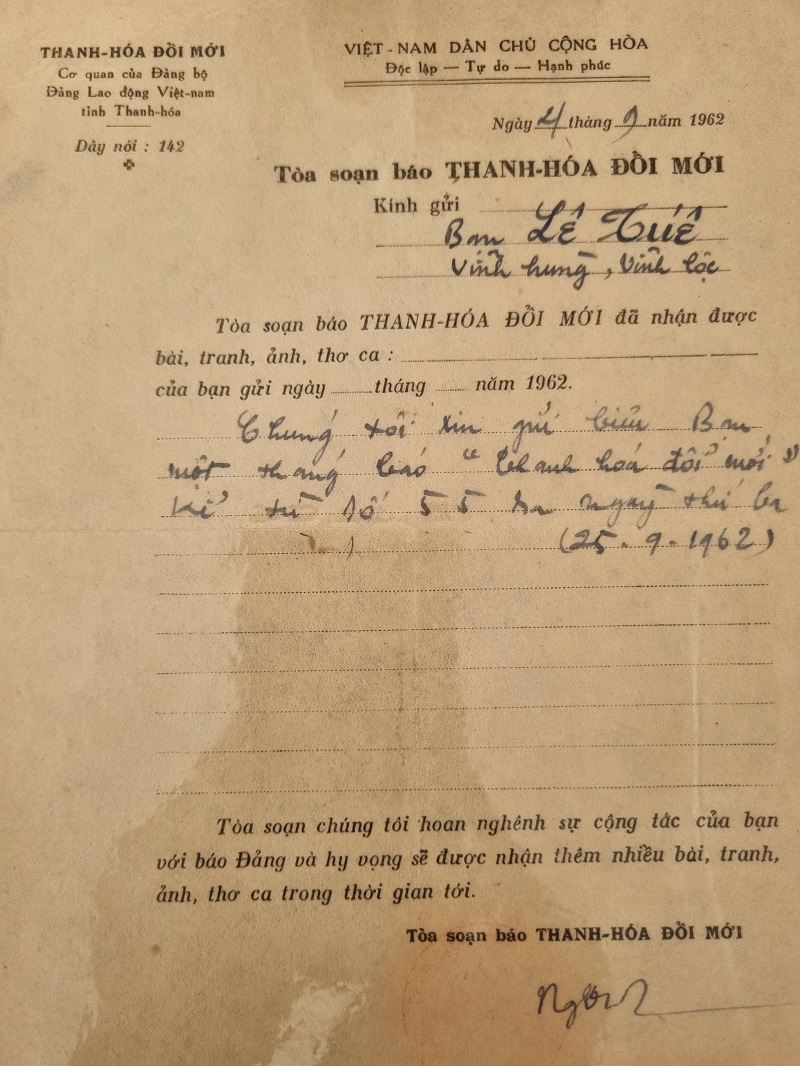 THANH-HÓA ĐỔI MỚI
Cơ quan của Đảng bộ
Đảng Lao động Việt-nam
tỉnh Thanh-hóa
Dây nói : 142
VIỆT-NAM DÂN CHỦ CỘNG HÒA
Độc lập — Tự do — Hạnh phúc
Ngày 4 tháng 9 năm 1962
Tòa soạn báo THANH-HÓA ĐỔI MỚI
Kính gửi
Bạn LÊ TUẾ
Vĩnh hưng, Vĩnh lộc
Tòa soạn báo THANH-HÓA ĐỔI MỚI đã nhận được
bài, tranh, ảnh, thơ ca :
của bạn gửi ngày tháng năm 1962.
Chúng tôi xin gửi biếu Bạn
một tháng báo "Thanh hoá đổi mới"
Kể từ số 55 ra ngày thứ ba
(25-9-1962)
Tòa soạn chúng tôi hoan nghênh sự cộng tác của bạn
với báo Đảng và hy vọng sẽ được nhận thêm nhiều bài, tranh,
ảnh, thơ ca trong thời gian tới.
Tòa soạn báo THANH-HÓA ĐỔI MỚI